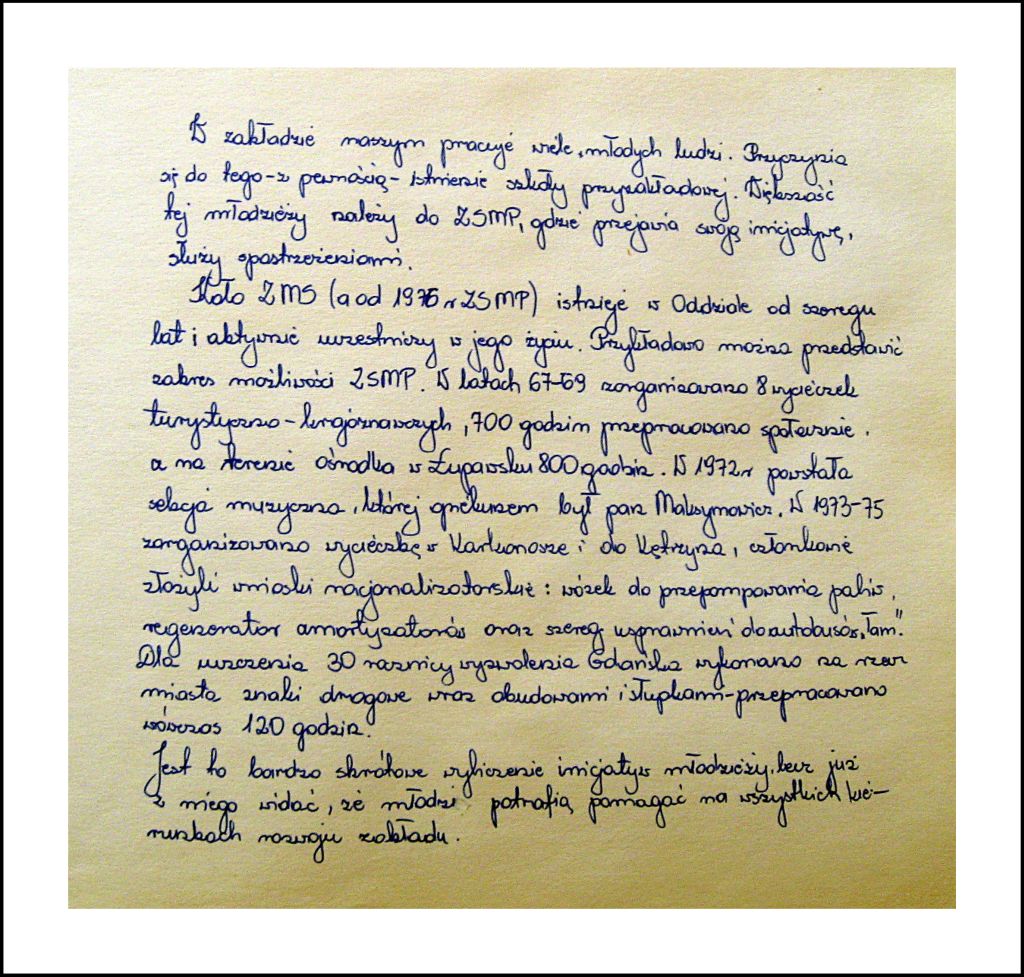 W zakładzie naszym pracuje wiele, młodych ludzi. Przyczynia
się do tego - z pewnością - istnienie szkoły przyzakładowej. Większość
tej młodzieży należy do ZSMP, gdzie przejawia swoją inicjatywę,
służy spostrzeżeniami.
Koło ZMS (a od 1976 r ZSMP) istnieje w Oddziale od szeregu
lat i aktywnie uczestniczy w jego życiu. Przykładowo można przedstawić
zakres możliwości ZSMP. W latach 67-69 zorganizowano 8 wycieczek
turystyczno - krajoznawczych, 700 godzin przepracowano społecznie.
a na terenie Ośrodka w Łupawsku 800 godzin. W 1972 r powstała
sekcja muzyczna, której opiekunem był pan Maksymowicz. W 1973-75
zorganizowano wycieczkę w Karkonosze i do Kętrzyna, członkowie
złożyli wnioski racjonalizatorskie: wózek do przepompowania paliw,
regenerator amortyzatorów oraz szereg usprawnień do autobusów „Jam".
Dla uczczenia 30 rocznicy wyzwolenia Gdańska wykonano na rzecz
miasta znaki drogowe wraz obudowami i słupkami - przepracowano
wówczas 120 godzin.
Jest to bardzo skrótowe wyliczenie inicjatyw młodzieży, lecz już
z niego widać, że młodzi potrafią pomagać na wszystkich kie-
runkach rozwoju zakładu.